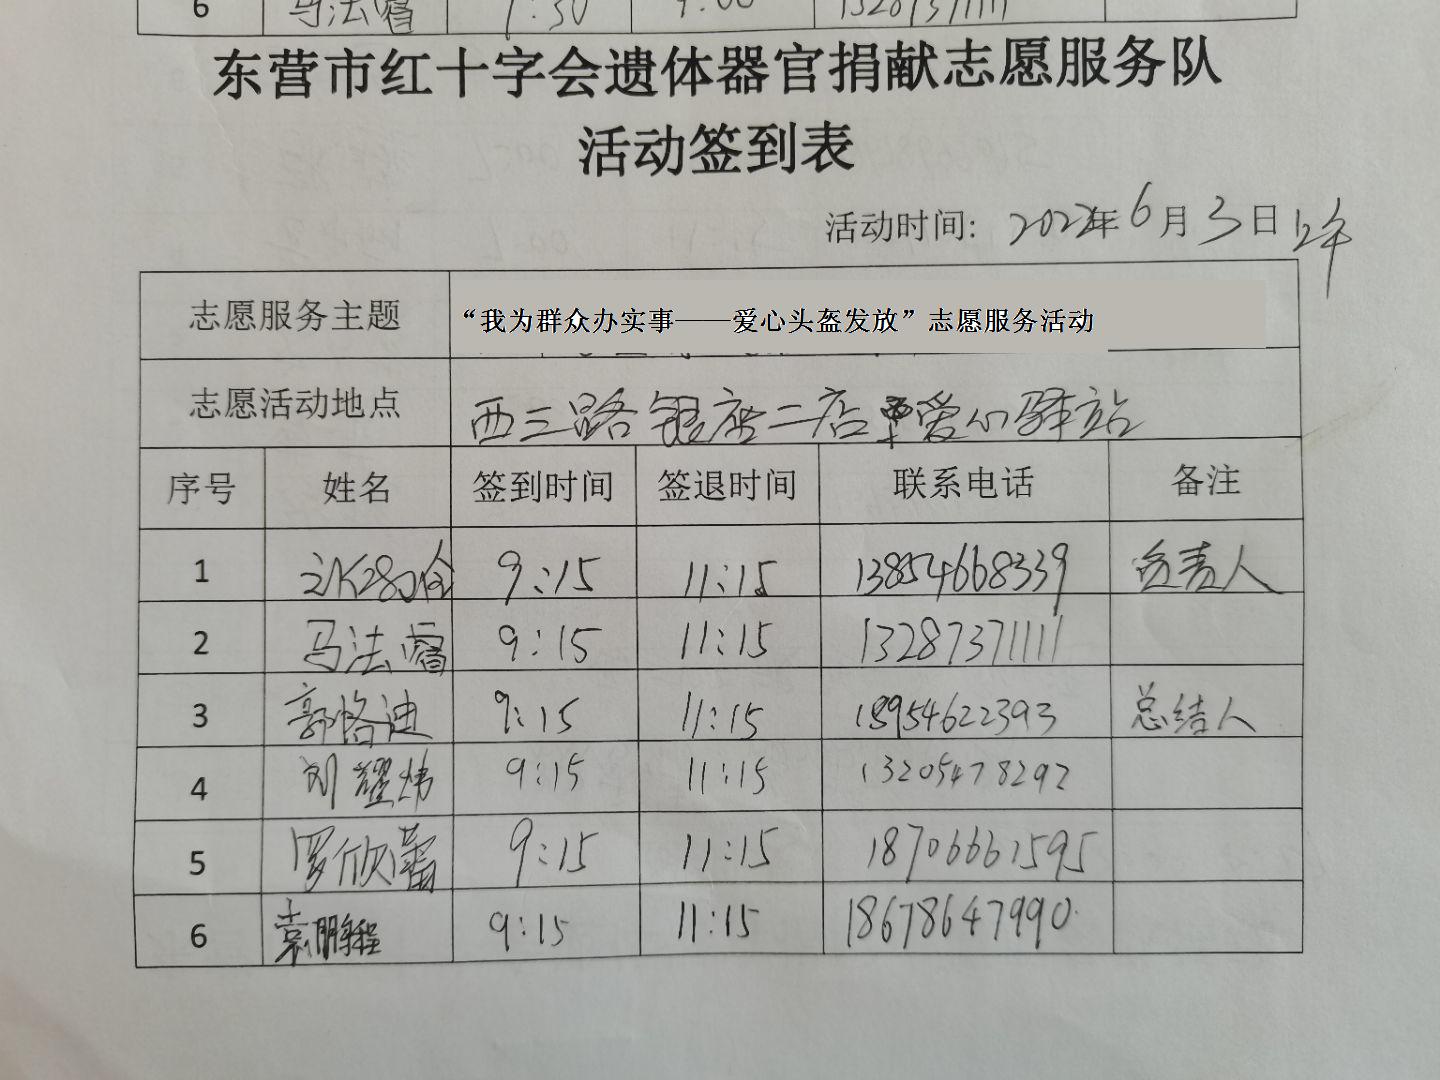 6 马法睿 9:00 13287371111
东营市红十字会遗体器官捐献志愿服务队
活动签到表
活动时间: 2022年6月3日
志愿服务主题 “我为群众办实事——爱心头盔发放”志愿服务活动
志愿活动地点 西三路银座二店 爱心驿站
序号 姓名 签到时间 签退时间 联系电话 备注
1 9:15 11:15 13854668339 负责人
2 马法睿 9:15 11:15 13287371111
3 郭恪迪 9:15 11:15 15954622393 总结人
4 刘耀炜 9:15 11:15 13205478292
5 罗欣蕾 9:15 11:15 18706661595
6 袁鹏程 9:15 11:15 18678647990